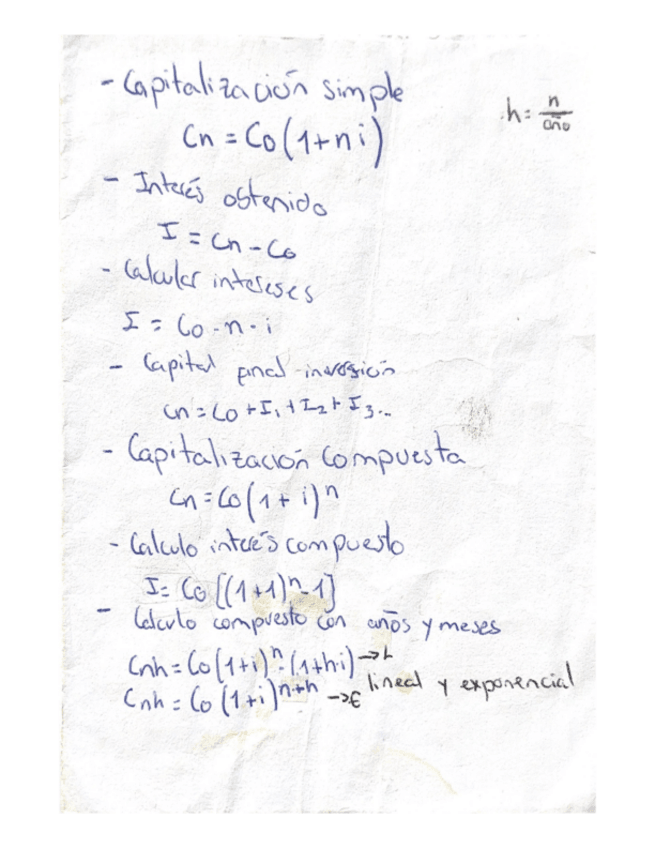 - Capitalización simple
h = n/año
Cn = Co(1+ni)
- Interés obtenido
I = Cn - Co
- Calculer intereses
I = Co·n·i
- Capital final inversión
Cn = Co + I₁ + I₂ + I₃...
- Capitalización Compuesta
Cn = Co(1+i)ⁿ
- Calculo interés compuesto
I = Co[(1+1)ⁿ-1]
- Calculo compuesto con años y meses
Cnh = Co(1+i)ⁿ·(1+h·i) → L
lineal y exponencial
Cnh = Co(1+i)ⁿ⁺ʰ → E